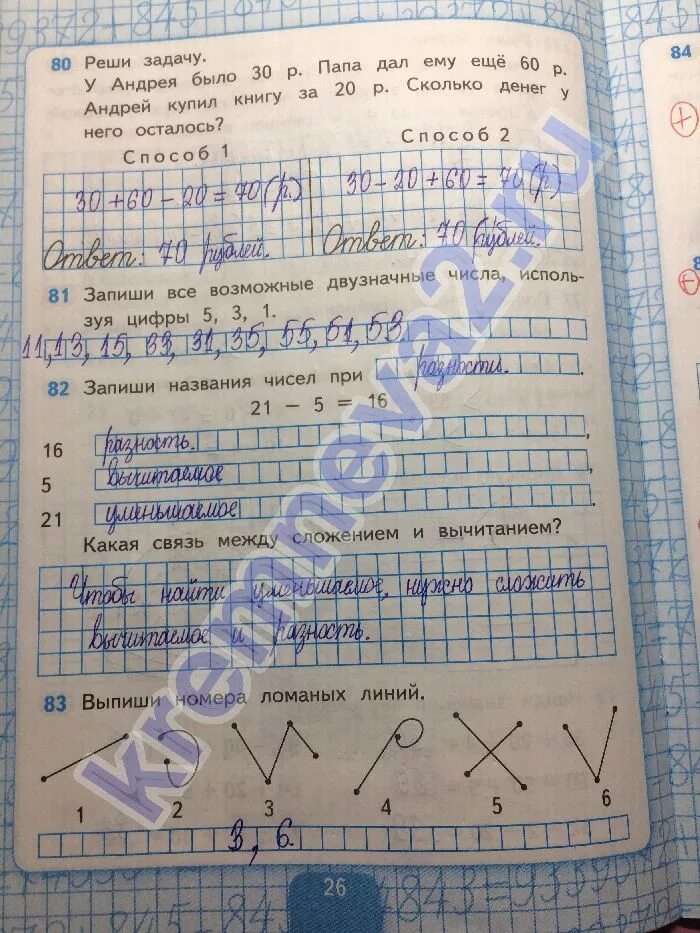 80 Реши задачу.
У Андрея было 30 р. Папа дал ему ещё 60 р.
Андрей купил книгу за 20 р. Сколько денег у
него осталось?
Способ 1 Способ 2
30+60-20=70(р.) 30-20+60=70(р.)
Ответ: 70 рублей. Ответ: 70 рублей.
81 Запиши все возможные двузначные числа, исполь-
зуя цифры 5, 3, 1.
11, 13, 15, 33, 31, 35, 55, 51, 53.
82 Запиши названия чисел при разности.
21 – 5 = 16
16 разность.,
5 вычитаемое,
21 уменьшаемое.
Какая связь между сложением и вычитанием?
Чтобы найти уменьшаемое, нужно сложить
вычитаемое и разность.
83 Выпиши номера ломаных линий.
1 2 3 4 5 6
3, 6.
26
84
kremneva2.ru